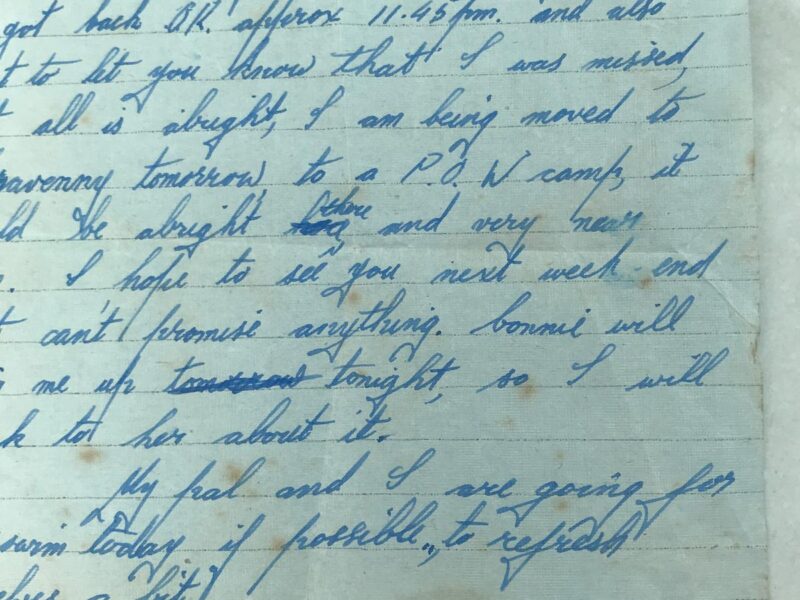 got back O.K. approx 11.45pm. and also
t to let you know that I was missed,
t all is alright, I am being moved to
avenny tomorrow, to a P.O.W camp, it
ld be alright there, and very near
. I hope to see you next week-end
t can't promise anything. Connie will
me up tomorrow tonight, so I will
k to her about it.
My pal and I are going for
swim today if possible, to refresh
elves a bit.